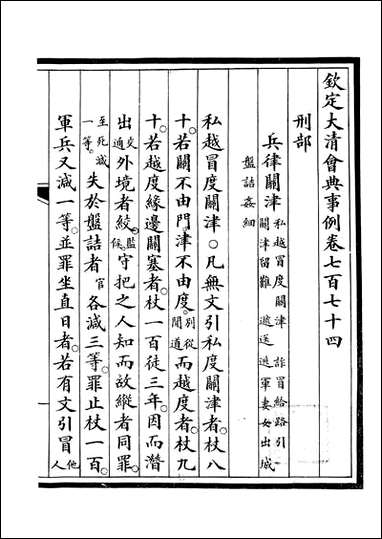 欽定大清會典事例卷七百七十四
刑部
兵律關津私越冒度關津 詐冒給路引
關津留難 遞送逃軍妻女出城
盤詰姦細
私越冒度關津○凡無文引私度關津者杖八
十若關不由門津不由度別從間道而越度者杖九
十若越度緣邊關塞者杖一百徒三年因而潛
出交通外境者絞監候守把之人知而故縱者同罪
至死減一等失於盤詰者官各減三等罪止杖一百
軍兵又減一等並罪坐直日者若有文引冒他人